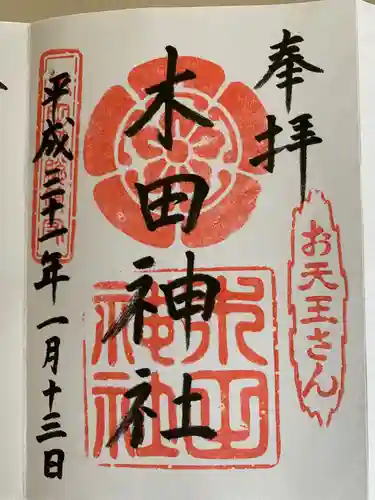 奉拝
お天王さん
木田神社
木田神社
平成三十一年一月十三日